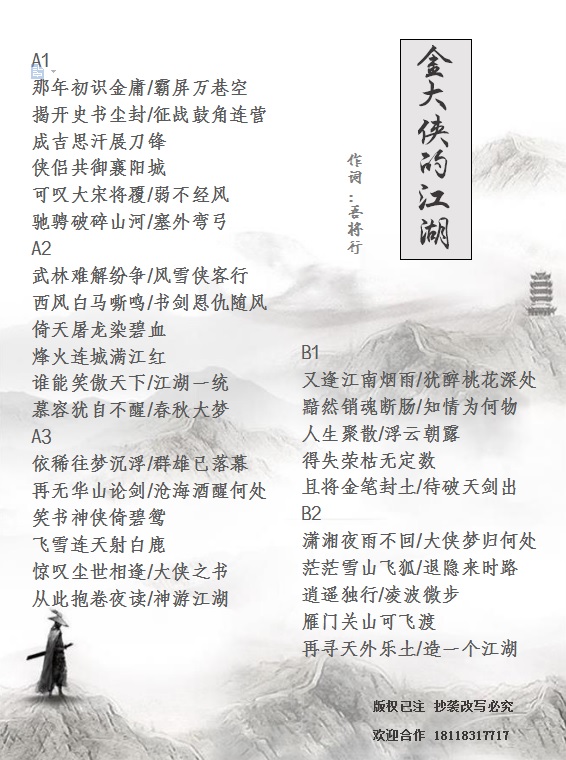 金大侠的江湖
作词：吾将行
A1
那年初识金庸/霸屏万巷空
揭开史书尘封/征战鼓角连营
成吉思汗展刀锋
侠侣共御襄阳城
可叹大宋将覆/弱不经风
驰骋破碎山河/塞外弯弓
A2
武林难解纷争/风雪侠客行
西风白马嘶鸣/书剑恩仇随风
倚天屠龙染碧血
烽火连城满江红
谁能笑傲天下/江湖一统
慕容犹自不醒/春秋大梦
A3
依稀往梦沉浮/群雄已落幕
再无华山论剑/沧海酒醒何处
笑书神侠倚碧鸳
飞雪连天射白鹿
惊叹尘世相逢/大侠之书
从此抱卷夜读/神游江湖
B1
又逢江南烟雨/犹醉桃花深处
黯然销魂断肠/知情为何物
人生聚散/浮云朝露
得失荣枯无定数
且将金笔封土/待破天剑出
B2
潇湘夜雨不回/大侠梦归何处
茫茫雪山飞狐/退隐来时路
逍遥独行/凌波微步
雁门关山可飞渡
再寻天外乐土/造一个江湖
版权已注 抄袭改写必究
欢迎合作 18118317717